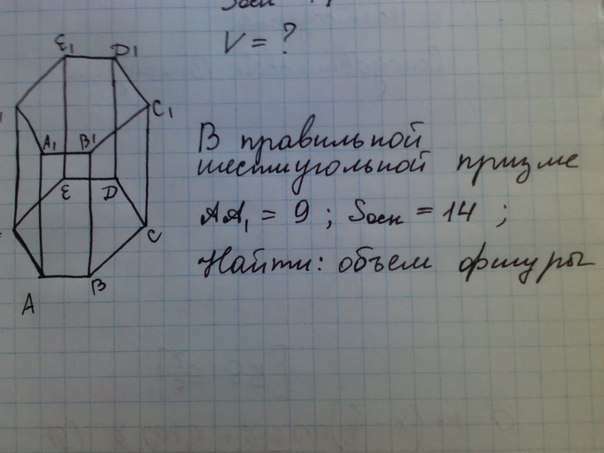 Sосн
V = ?
E1 D1
C1
A1 B1
В правильной
шестиугольной призме
E D
AA1 = 9 ; Sосн = 14 ;
C
Найти: объем фигуры
B
A